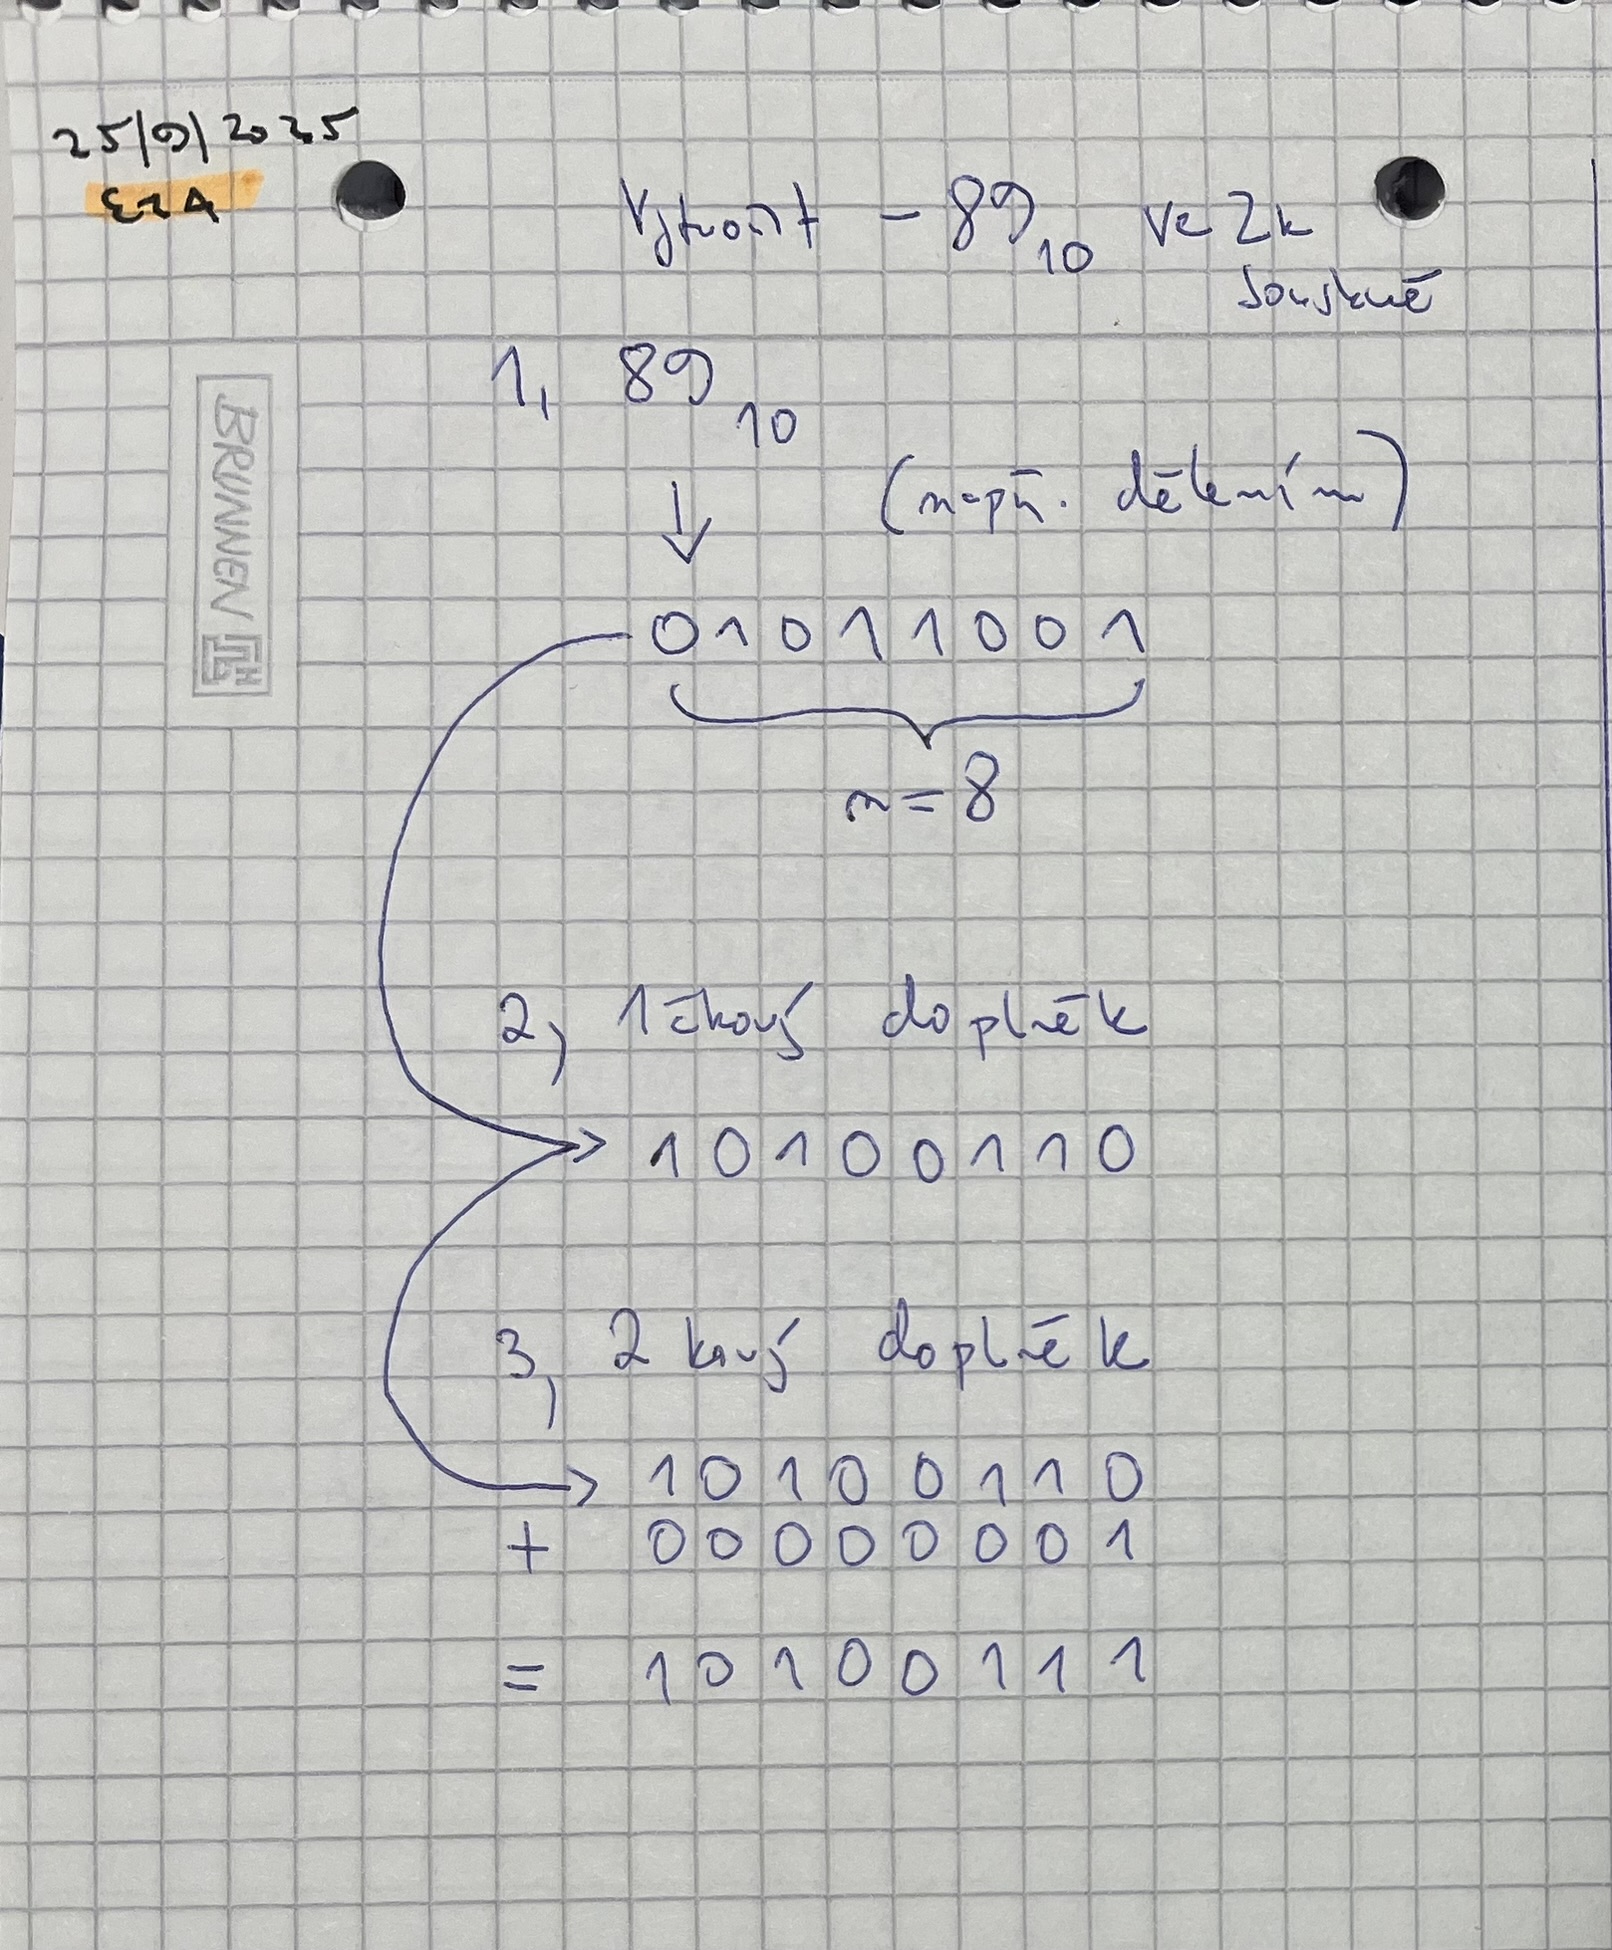 25/9/2025
EZA
Vytvořit -89₁₀ ve 2k
soustavě
1, 89₁₀
(např. dělením)
01011001
n=8
2, 1čkový doplněk
10100110
3, 2kový doplněk
10100110
+ 00000001
= 10100111
BRUNNEN